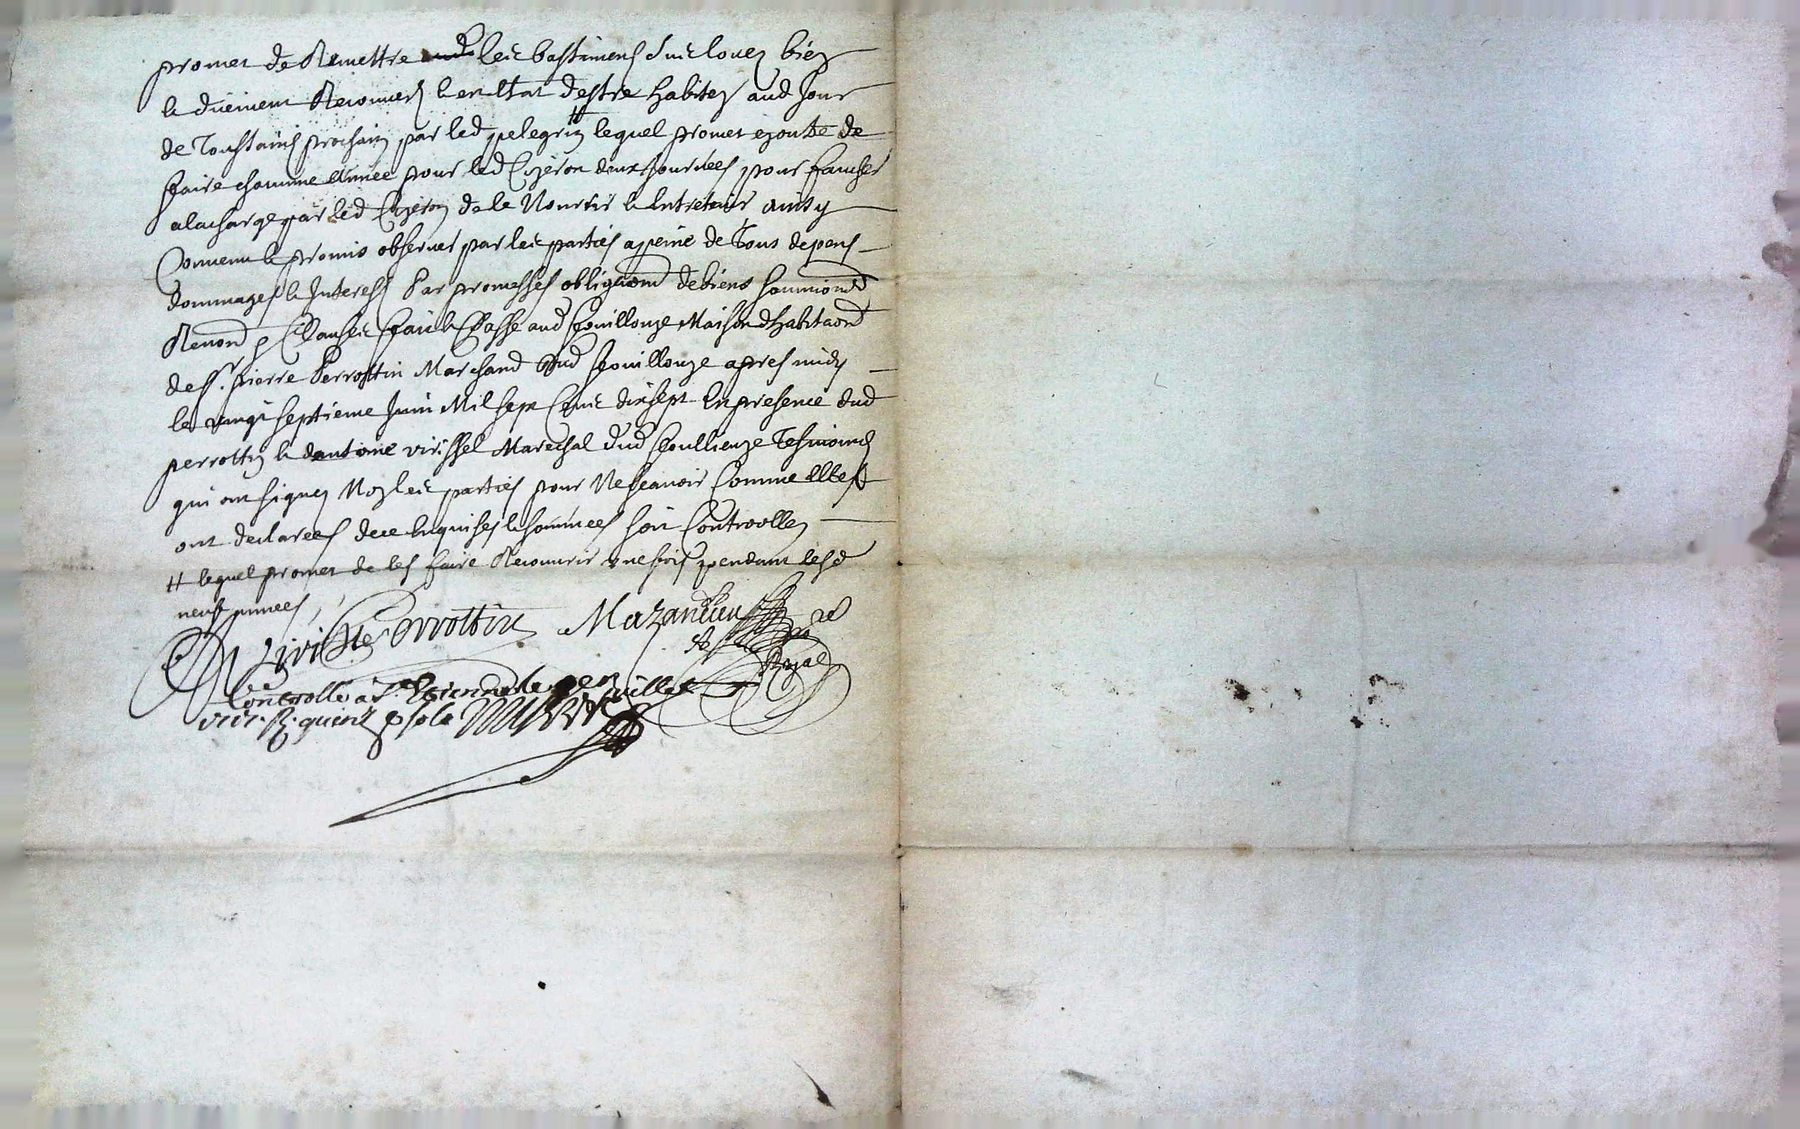 promet de Remettre lesd bastimens sus louez bien
& duement Recouverts & en Estat destre habitez aud Jour
de Toussaints prochain par led pelegrin ^# lequel promet ejouste de
faire chacune année pour led Cizeron deux journées pour faucher
a la charge par led Cizeron de le Nourrir & Entretenir ainsy
Convenu & promis observer par lesd parties a peine de Tous depens
dommages & Interests Par promesses obligaond de biens soumiond
Renond & Clauses fait & Passé aud feouillouze Maison dhabitaond
de Sr. pierre Perrottin Marchand dud feouillouze apres midy
le vingt septieme Juin Mil sept Cent dix sept En presence dud
perrottin & dantoine virissel Marechal dud feoullieuze Tesmoins
qui ont signez Non lesd parties pour Ne scavoir Comme Elles
ont declarées de ce Enquises & sommées soit Controollez
# lequel promet de les faire Recouvrir une fois pendant lesd
neuf années
Perrottin Mazandieu
Royal
Controllé à St. Etienne le